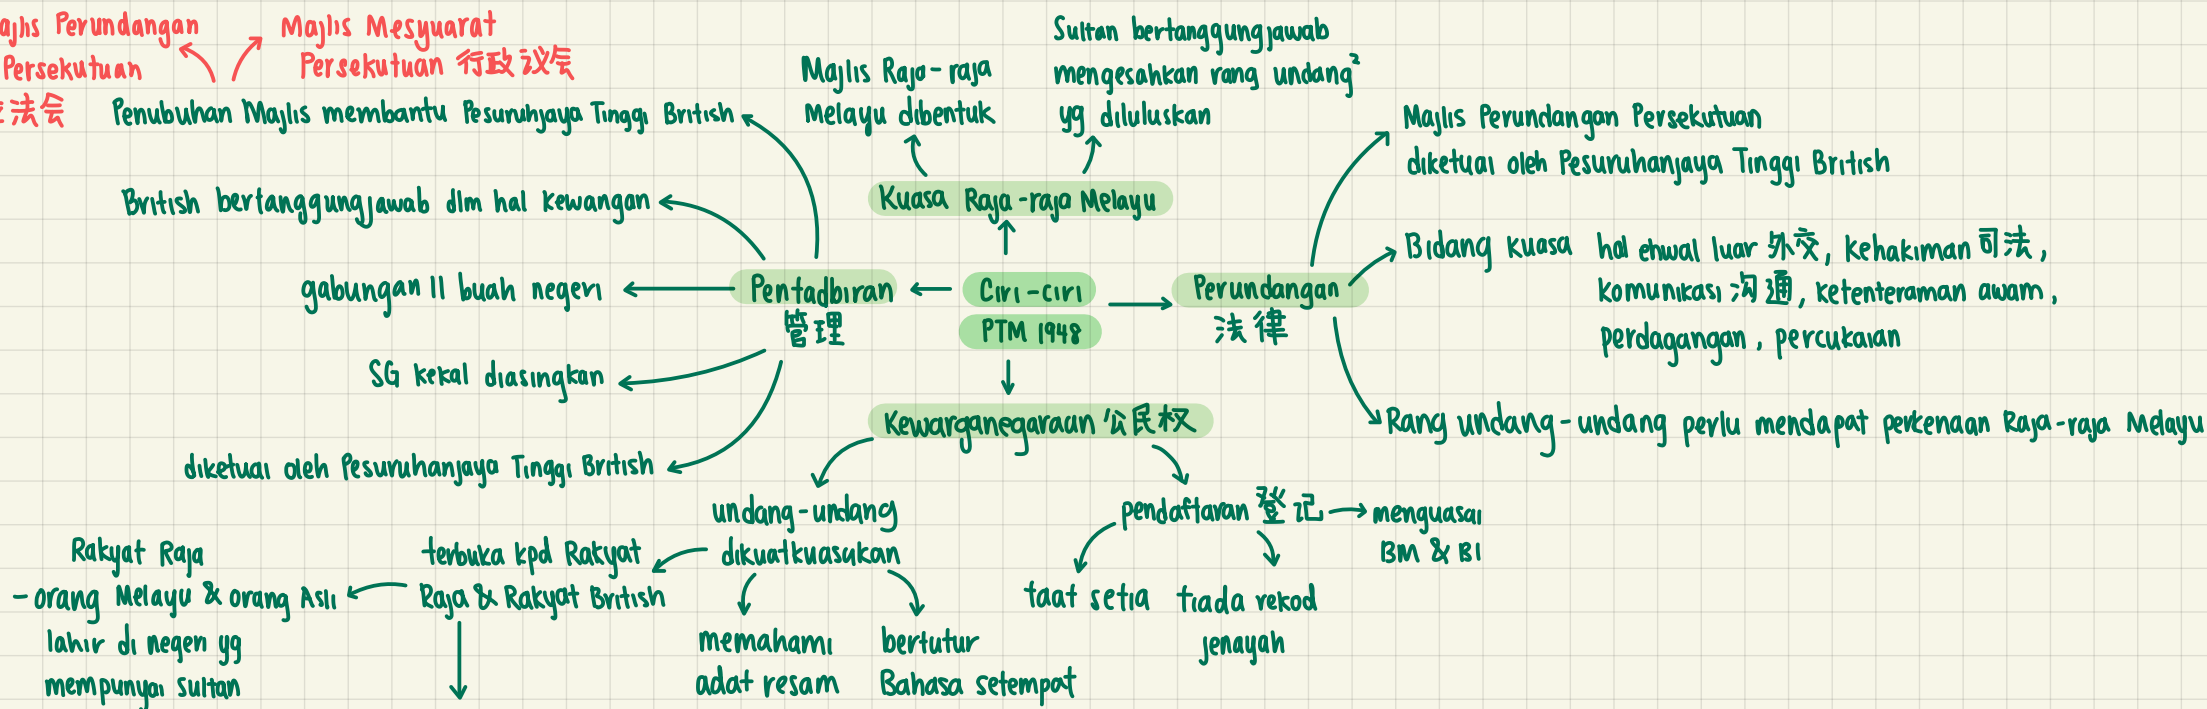 Perundangan
Persekutuan
法会
Majlis Mesyuarat
Persekutuan 行政议会
Penubuhan Majlis membantu Pesuruhjaya Tinggi British
British bertanggungjawab dlm hal kewangan
gabungan 11 buah negeri
SG kekal diasingkan
diketuai oleh Pesuruhanjaya Tinggi British
Pentadbiran
管理
Ciri-ciri
PTM 1948
Majlis Raja-raja
Melayu dibentuk
Sultan bertanggungjawab
mengesahkan rang undang²
yg diluluskan
Kuasa Raja-raja Melayu
Perundangan
法律
Majlis Perundangan Persekutuan
diketuai oleh Pesuruhanjaya Tinggi British
Bidang kuasa hal ehwal luar 外交, kehakiman 司法,
komunikasi 沟通, ketenteraman awam,
perdagangan, percukaian
Rang undang-undang perlu mendapat perkenaan Raja-raja Melayu
Kewarganegaraan 公民权
undang-undang
dikuatkuasakan
terbuka kpd Rakyat
Raja & Rakyat British
Rakyat Raja
- orang Melayu & orang Asli
lahir di negeri yg
mempunyai sultan
memahami
adat resam
bertutur
Bahasa setempat
pendaftaran 登记
menguasai
BM & BI
taat setia
tiada rekod
jenayah